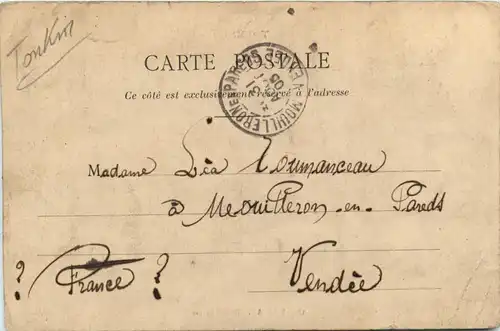 Tonkin
CARTE POSTALE
Ce côté est exclusivement réservé à l'adresse
MOUILLERON-EN-PAREDS VENDÉE
05
Madame Léa Toumanceau
à Meouilleron-en-Pareds
? France ? Vendée